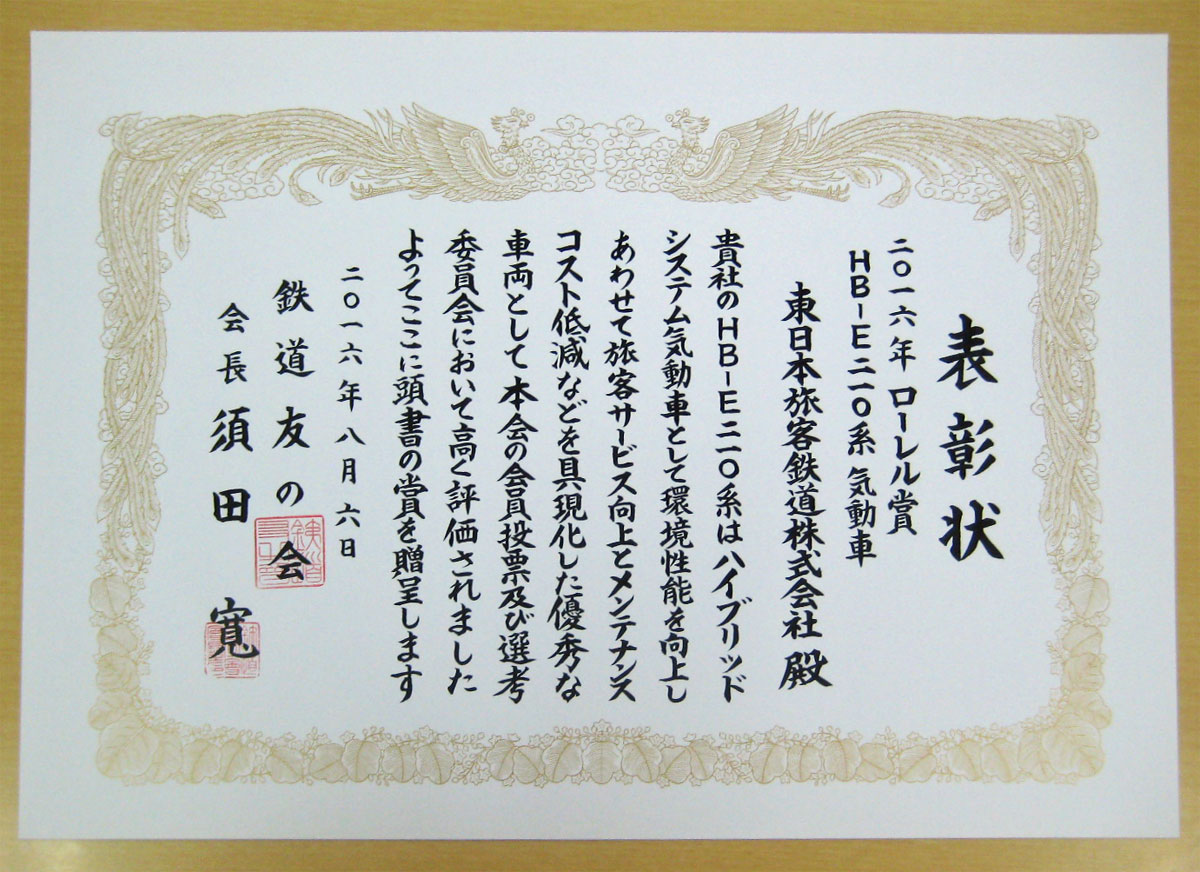 表彰状
二〇一六年 ローレル賞
HB-E二一〇系 気動車
東日本旅客鉄道株式会社 殿
貴社のHB-E二一〇系はハイブリッド
システム気動車として環境性能を向上し
あわせて旅客サービス向上とメンテナンス
コスト低減などを具現化した優秀な
車両として本会の会員投票及び選考
委員会において高く評価されました
よってここに頭書の賞を贈呈します
二〇一六年八月六日
鉄道友の会
会長 須田 寛